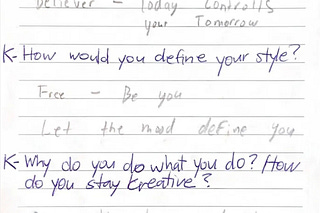 believer - Today Controlls
your Tomorrow
K- How would you define your style?
Free - Be you
Let the mood define you
K- Why do you do what you do? How
do you stay kreative?